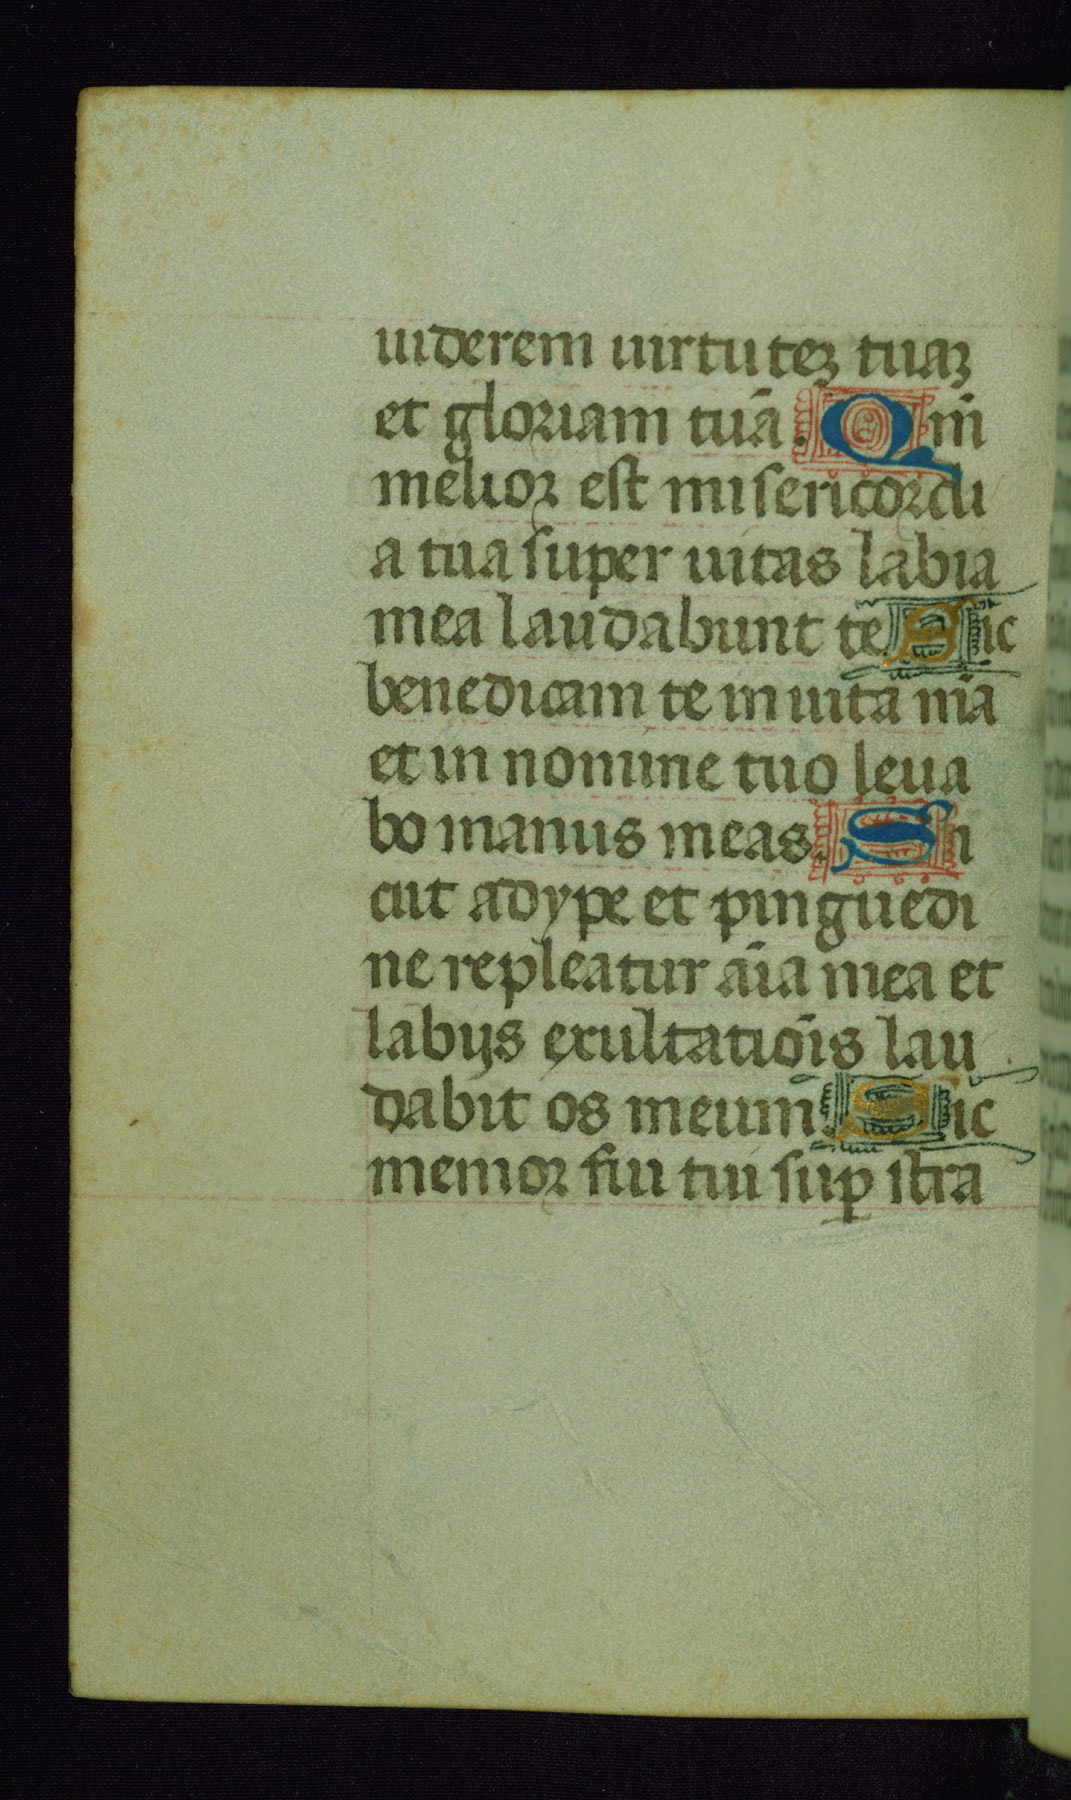 uiderem uirtuteʒ tuaʒ
et gloriam tuā. Qm̄
melior est misericordi
a tua super uitas labia
mea laudabunt te. Sic
benedicam te in uita m̄a
et in nomine tuo leua
bo manus meas. Si
cut adype et pinguedi
ne repleatur aīa mea et
labijs exultatiōis lau
dabit os meum. Sic
memor fui tui suꝑ stra